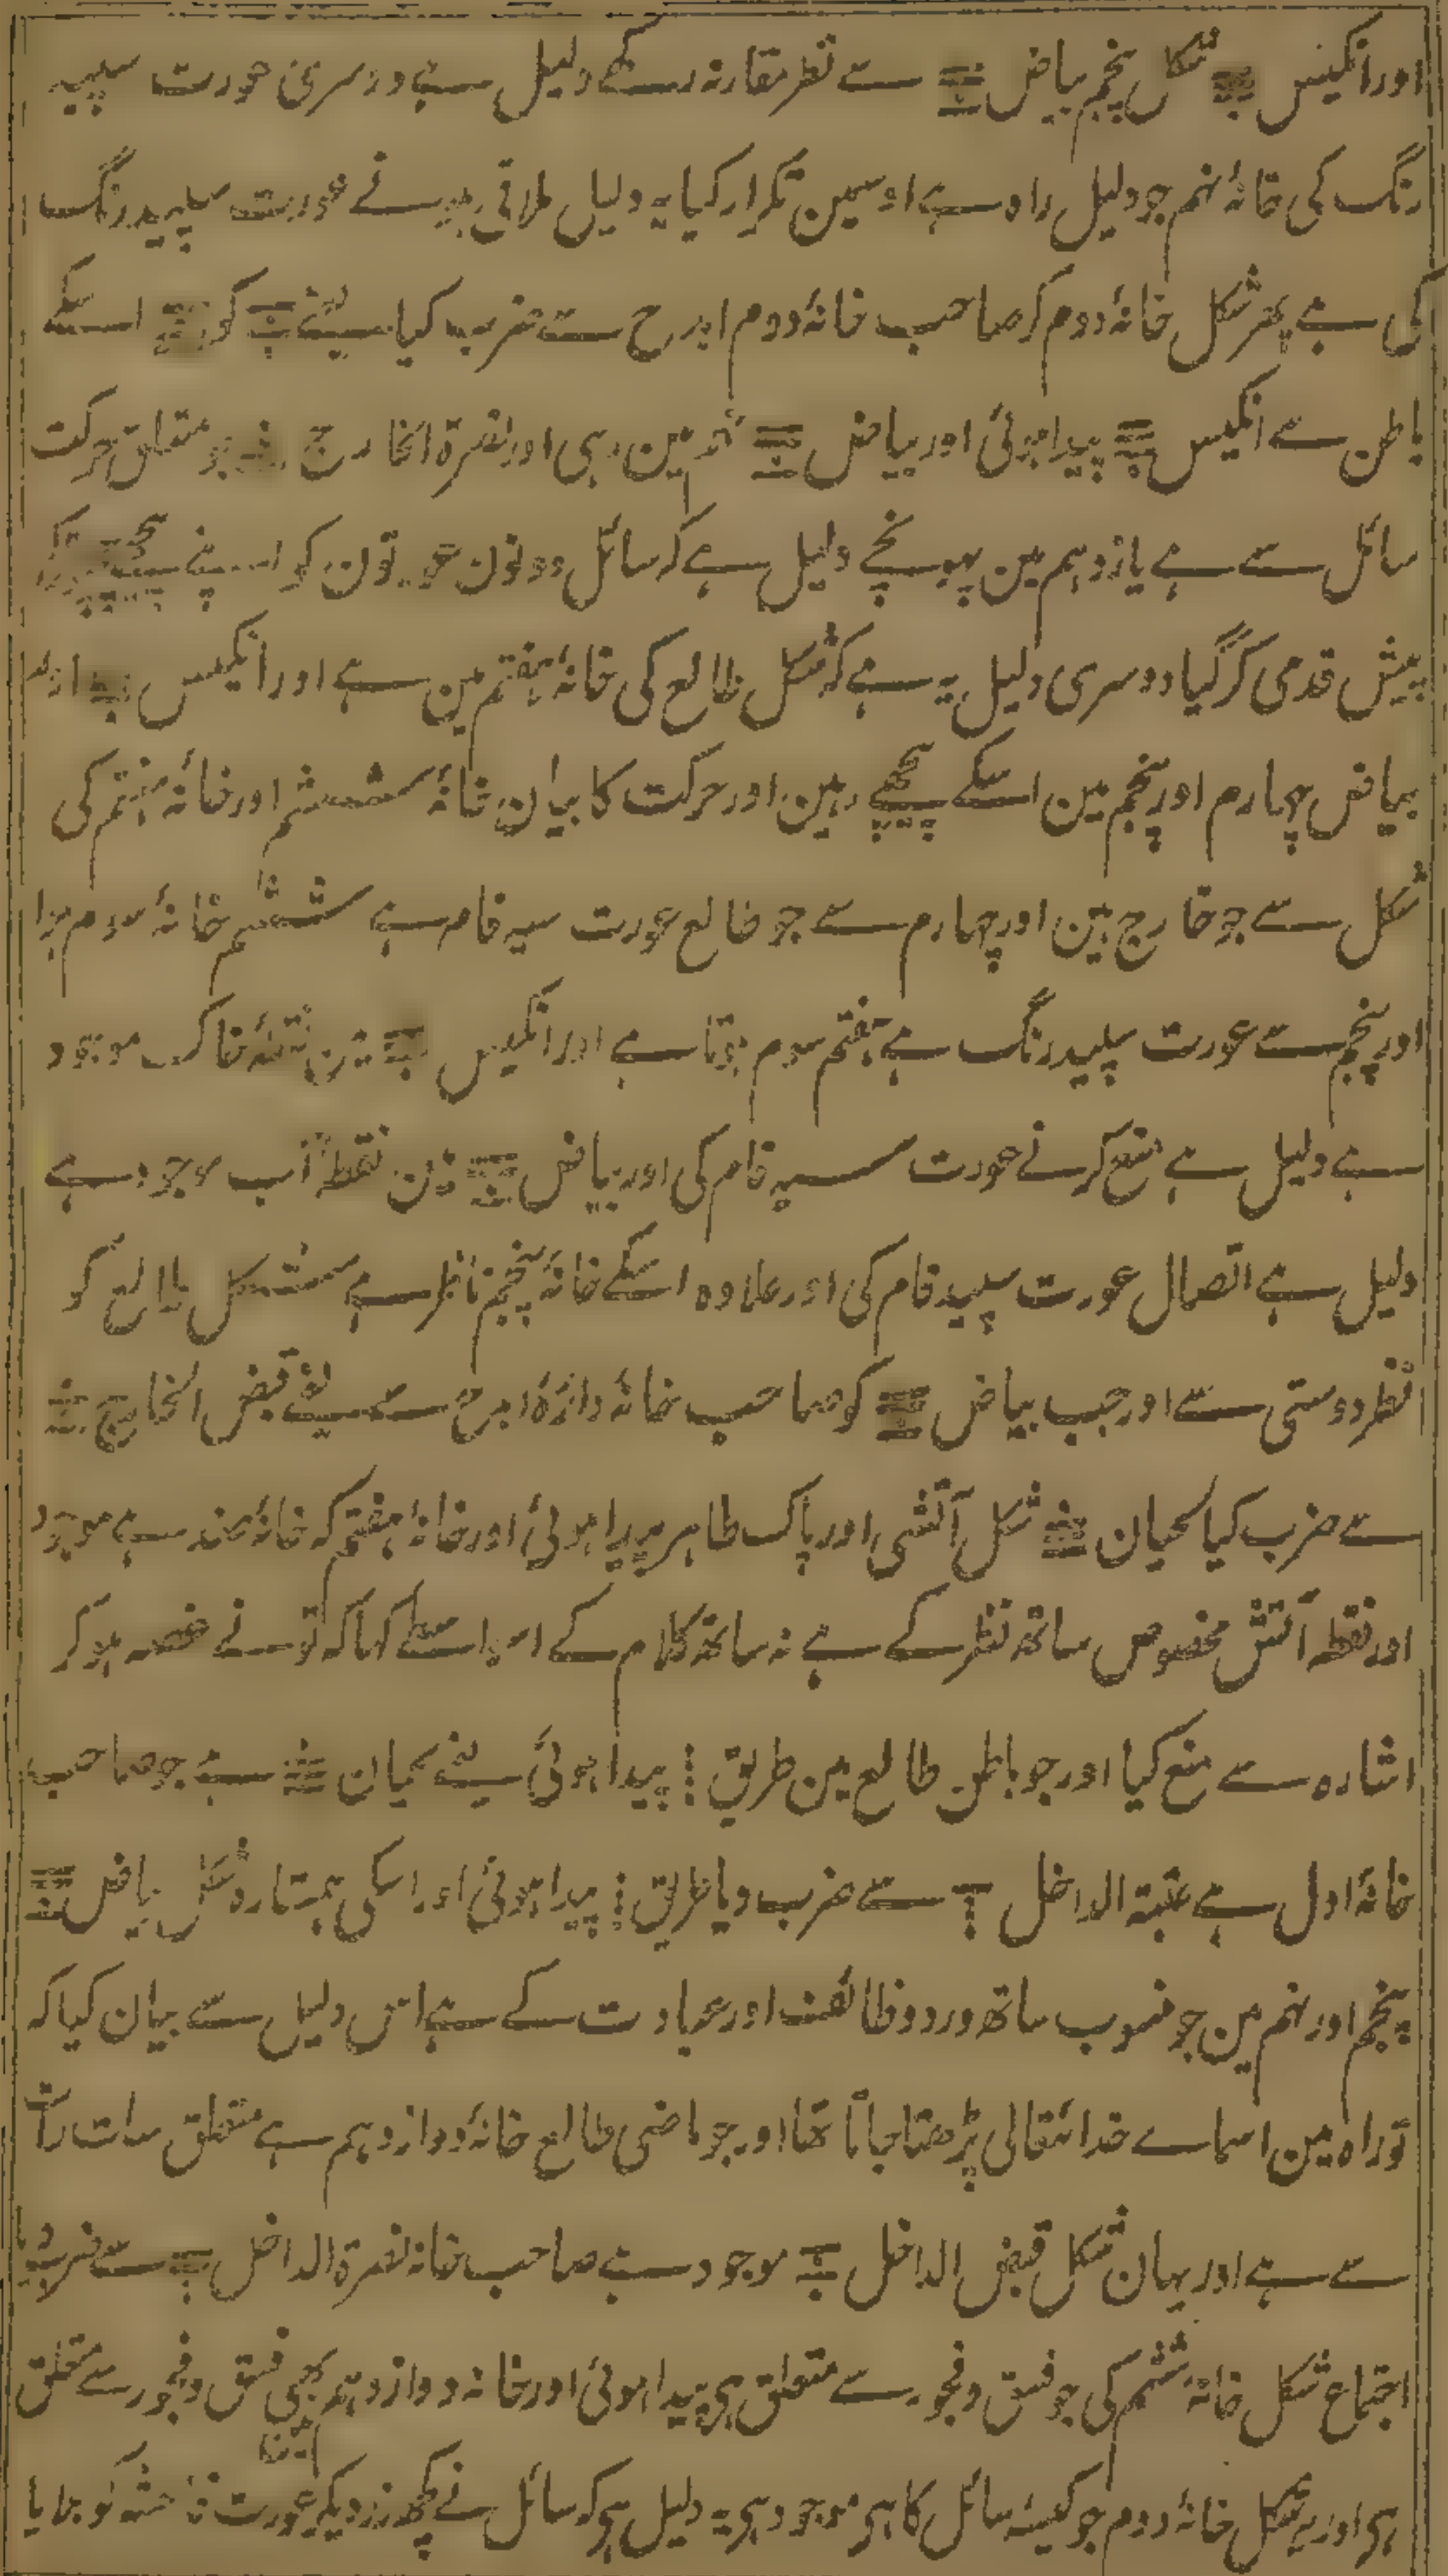 اور انکیس شکل پنجم بیاض سے نظر مقارنہ رکھے دلیل ہے دوسری عورت سپید
رنگ کی خانۂ نہم جو دلیل راہ ہے اوسمین تکرار کیا یہ دلیل ملاقی ہونے عورت سپید رنگ
کی ہے پھر شکل خانۂ دوم کو صاحب خانۂ دوم ابدح سے ضرب کیا یعنے کو اسکے
باطن سے انکیس پیدا ہوئی اور بیاض نہم مین رہی اور نصرۃ الخارج جو متعلق حرکت
سائل سے ہے یازدہم مین پہونچے دلیل ہے کہ سائل دونون عورتون کو اپنے پیچھے
پیش قدمی کر گیا دوسری دلیل یہ ہے کہ شکل طالع کی خانۂ ہفتم مین ہے اور انکیس اور
بیاض چہارم اور پنجم مین اسکے پیچھے رہین اور حرکت کا بیان خانۂ ششم اور خانۂ ہفتم کی
شکل سے جو خارج ہین اور چہارم سے جو طالع عورت سیہ فام ہے ششم خانۂ سوم ہوا
اور پنجم سے عورت سپید رنگ ہے ہفتم سوم ہوتا ہے اور انکیس مین نقطۂ خاک موجود
ہے دلیل ہے منع کرنے عورت سیہ فام کی اور بیاض مین نقطۂ آب موجود ہے
دلیل ہے اتصال عورت سپید فام کی اور علاوہ اسکے خانۂ پنجم ناظر ہے شکل طالع کو
نظر دوستی سے اور جب بیاض کو صاحب خانۂ دائرۂ ابدح سے یعنے قبض الخارج
سے ضرب کیا لحیان شکل آتشی اور پاک طاہر پیدا ہوئی اور خانۂ ہفتم کہ خانۂ ضد ہے موجود
اور نقطہ آتش مخصوص ساتھ نظر کے ہے نہ ساتھ کلام کے اسواسطے کہا کہ تو نے غصہ ہو کر
اشارہ سے منع کیا اور جو باطن طالع مین طریق پیدا ہوئی یعنے لحیان ہے جو صاحب
خانۂ اول ہے عتبۃ الداخل سے ضرب دیا طریق پیدا ہوئی اور اسکی ہمستارہ شکل بیاض
پنجم اور نہم مین جو منسوب ساتھ ورد و وظائف اور عبادت کے ہے اس دلیل سے بیان کیا کہ
تو راہ مین اسمائے خدائتعالی پڑھتا جاتا تھا اور جو ماضی طالع خانۂ دوازدہم ہے متعلق سات رات
سے ہے اور یہان شکل قبض الداخل موجود ہے صاحب خانہ نصرۃ الداخل سے ضرب دیا
اجتماع شکل خانۂ ششم کی جو فسق و فجور سے متعلق ہی پیدا ہوئی اور خانہ دوازدہم بھی فسق و فجور سے متعلق
ہی اور یہ شکل خانۂ دوم جو کیسۂ سائل کا ہی موجود ہی یہ دلیل ہی کہ سائل نے کچھ زر دیکر عورت فاحشہ کو بلایا